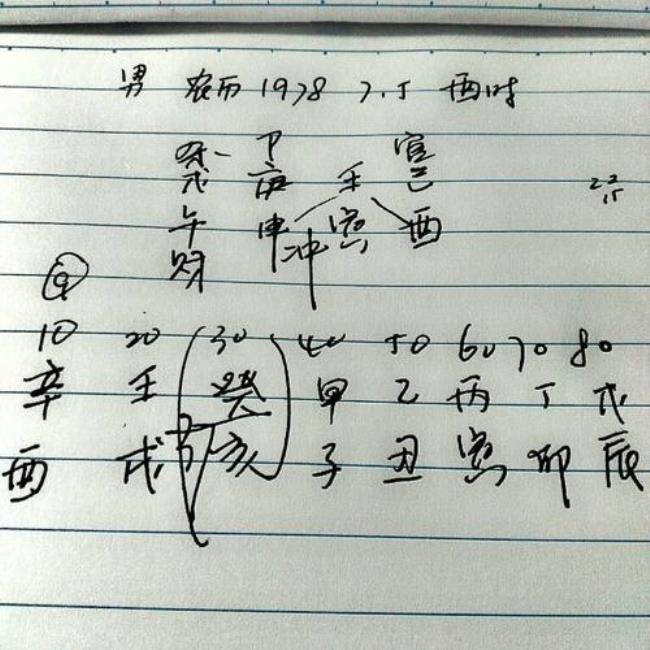 男 农历 1978 7.5 酉时
杀 卩 官
戊 庚 壬 己
午 申 冲 寅 酉
财
9
10 20 30 40 50 60 70 80
辛 壬 癸 甲 乙 丙 丁 戊
酉 戌 亥 子 丑 寅 卯 辰